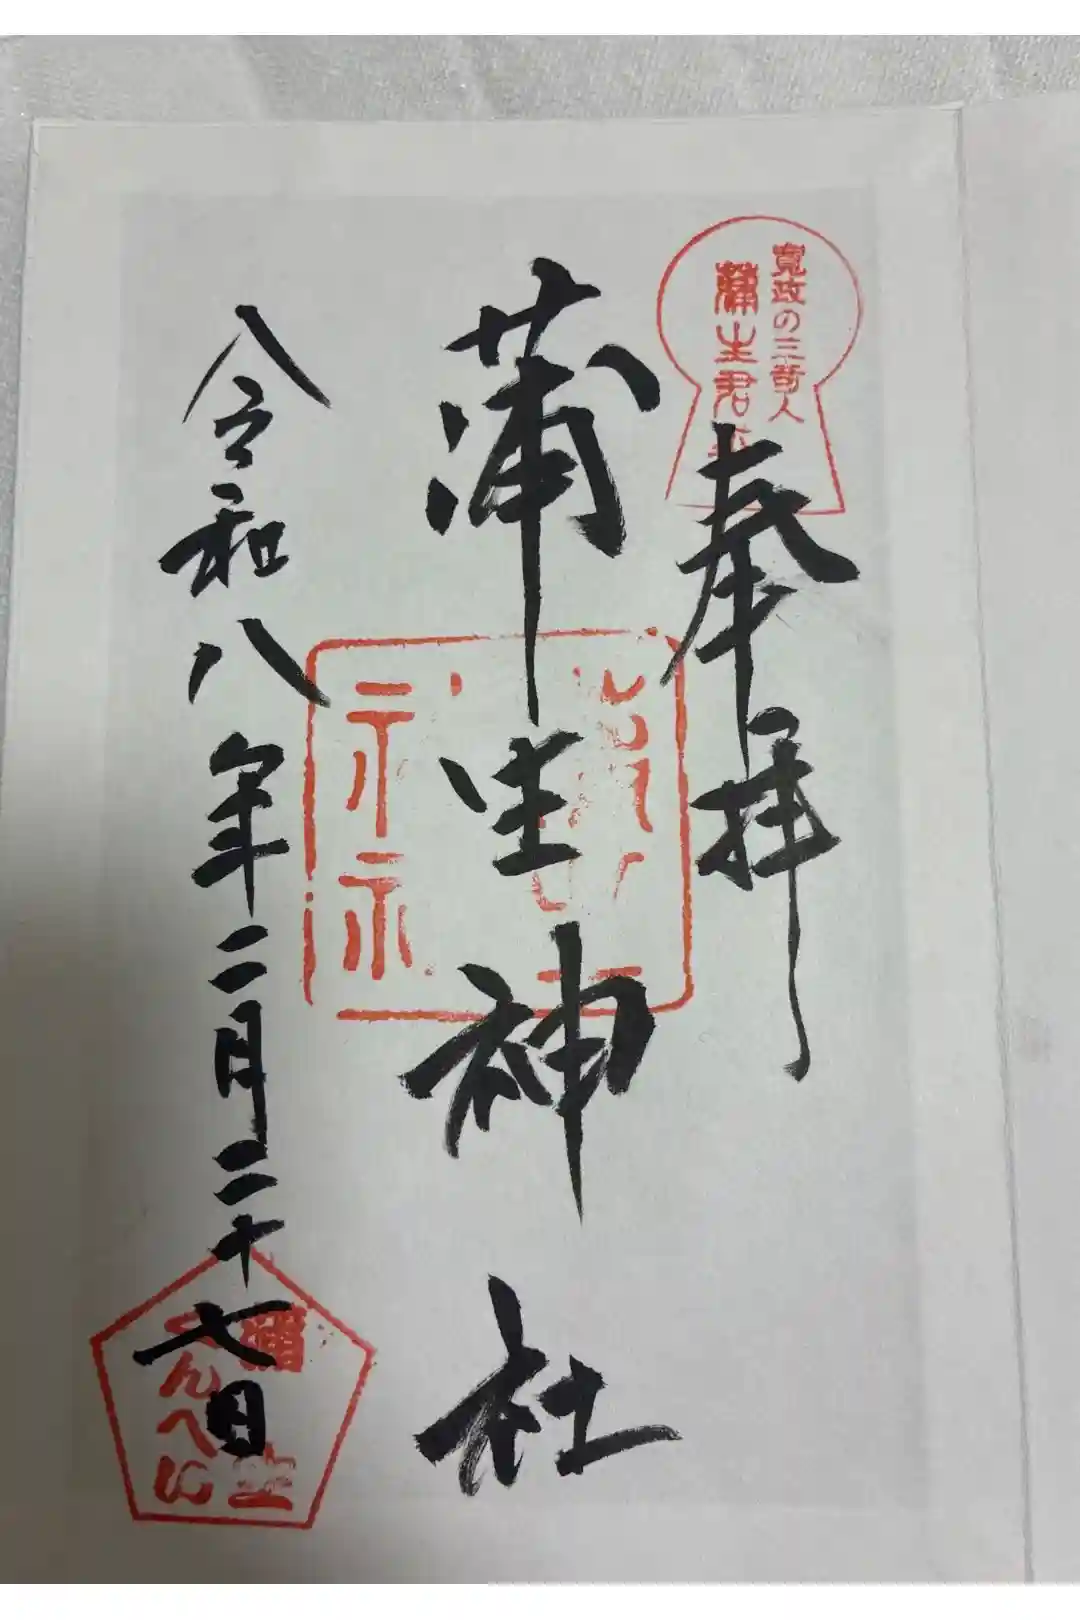 寛政の三奇人
蒲生君平
奉拝
蒲生神社
令和八年二月二十七日
蒲生
くんぺい